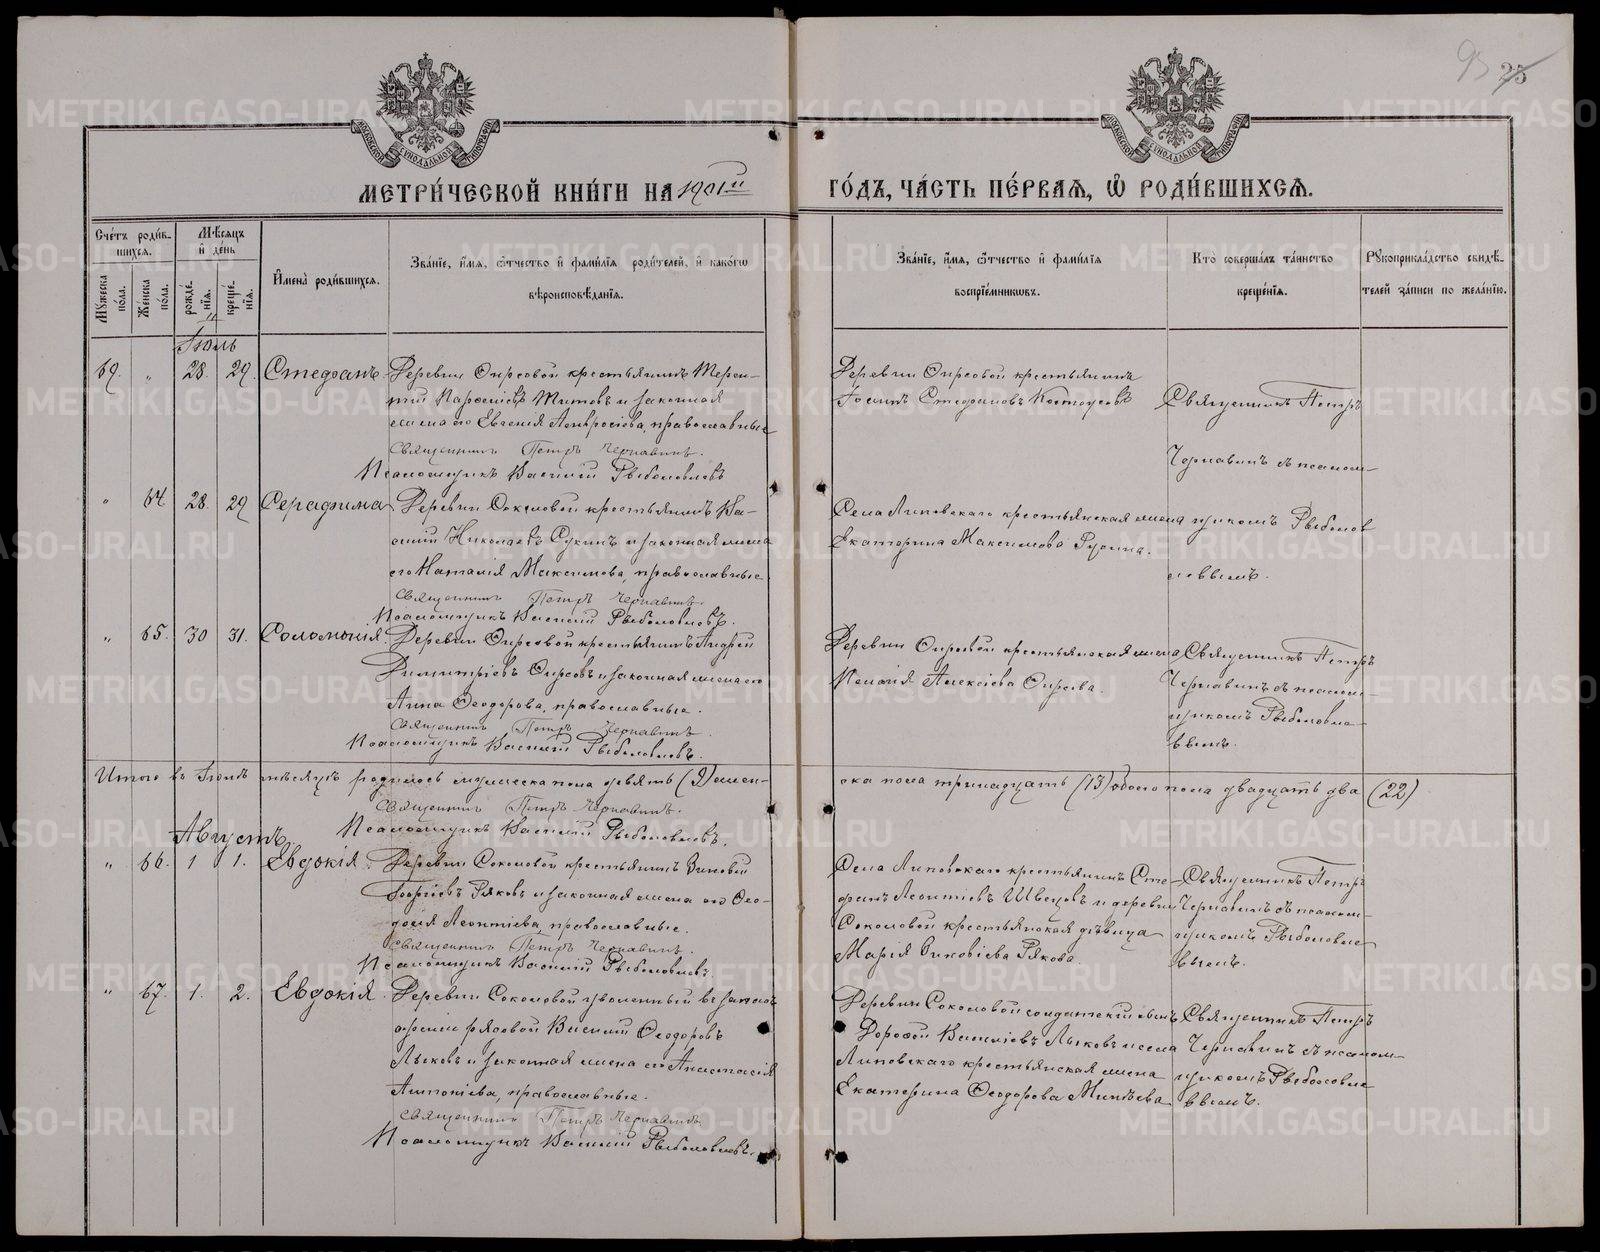 95 25
МОСКОВСКОЙ СѴНОДАЛЬНОЙ ТИПОГРАФІИ
МОСКОВСКОЙ СѴНОДАЛЬНОЙ ТИПОГРАФІИ
МЕТРИ́ЧЕСКОЙ КНИ́ГИ НА 1901й ГО́ДЪ, ЧА́СТЬ ПЕ́РВАѦ, Ѡ РОДИ́ВШИХСѦ.
Сче́тъ роди́в-
шихся.
Мѣ́сяцъ
и де́нь
Му́жеска по́ла.
Же́нска по́ла.
рожде́нія.
креще́нія.
И́мена роди́вшихся.
Зва́ніе, и́мя, ѻ́тчество и фами́лія роди́телей, и како́гѡ
вѣроисповѣ́данія.
Зва́ніе, и́мя, ѻ́тчество и фами́лія
воспріе́мниковъ.
Кто̀ соверша́лъ та́инство
креще́нія.
Рукоприкла́дство свидѣ́-
телей за́писи по жела́нію.
Іюль
69. " 28. 29. Стефанъ.
Деревни Фирсовой крестьянинъ Терен-
тій Титовъ и законная
жена его Евгенія Амвросіева, православные
Священникъ Петръ Чернавинъ.
Псаломщикъ Василій Рыболовлевъ
Деревни Фирсовой крестьянинъ
Стефановъ Костоусовъ
Священникъ Петръ
Чернавинъ съ псалом-
" 64 28. 29 Серафима
Деревни Соколовой крестьянинъ Ва-
силій Николаевъ и законная жена
его Наталія Максимова, православные.
Священникъ Петръ Чернавинъ.
Псаломщикъ Василій Рыболовлевъ.
Села Липовскаго крестьянская жена
Екатерина Максимова Русина.
щикомъ Рыболов
левымъ.
" 65. 30 31. Соломонія.
Деревни Фирсовой крестьянинъ Андрей
Димитріевъ Фирсовъ и законная жена его
Анна Ѳеодорова, православные.
Священникъ Петръ Чернавинъ.
Псаломщикъ Василій Рыболовлевъ.
Деревни Фирсовой крестьянская жена
Пелагія Алексіева Фирсова.
Священникъ Петръ
Чернавинъ съ псалом-
щикомъ Рыболовле-
вымъ.
Итого въ Іюлѣ мѣсяцѣ родилось мужеска пола девять (9) жен-
ска пола тринадцать (13) обоего пола двадцать два (22)
Священникъ Петръ Чернавинъ.
Псаломщикъ Василій Рыболовлевъ.
Августъ
" 66. 1 1. Евдокія.
Деревни Соколовой крестьянинъ Зиновій
Георгіевъ Ряковъ и законная жена его Ѳео-
досія Леонтіева, православные.
Священникъ Петръ Чернавинъ.
Псаломщикъ Василій Рыболовлевъ.
Села Липовскаго крестьянинъ Сте-
фанъ Леонтіевъ Швецовъ и деревни
Соколовой крестьянская дѣвица
Марія Зиновіева Рякова.
Священникъ Петръ
Чернавинъ съ псалом-
щикомъ Рыболовле
вымъ.
" 67. 1. 2. Евдокія.
Деревни Соколовой уволенный въ запасъ
арміи рядовой Василій Ѳеодоровъ
Лыковъ и законная жена его Анастасія
Антоніева, православные.
Священникъ Петръ Чернавинъ
Псаломщикъ Василій Рыболовлевъ.
Деревни Соколовой солдатскій сынъ
Дороѳей Василіевъ Лыковъ и села
Липовскаго крестьянская жена
Екатерина Ѳеодорова Минѣева
Священникъ Петръ
Чернавинъ съ псалом-
щикомъ Рыболовле
вымъ.
METRIKI.GASO-URAL.RU